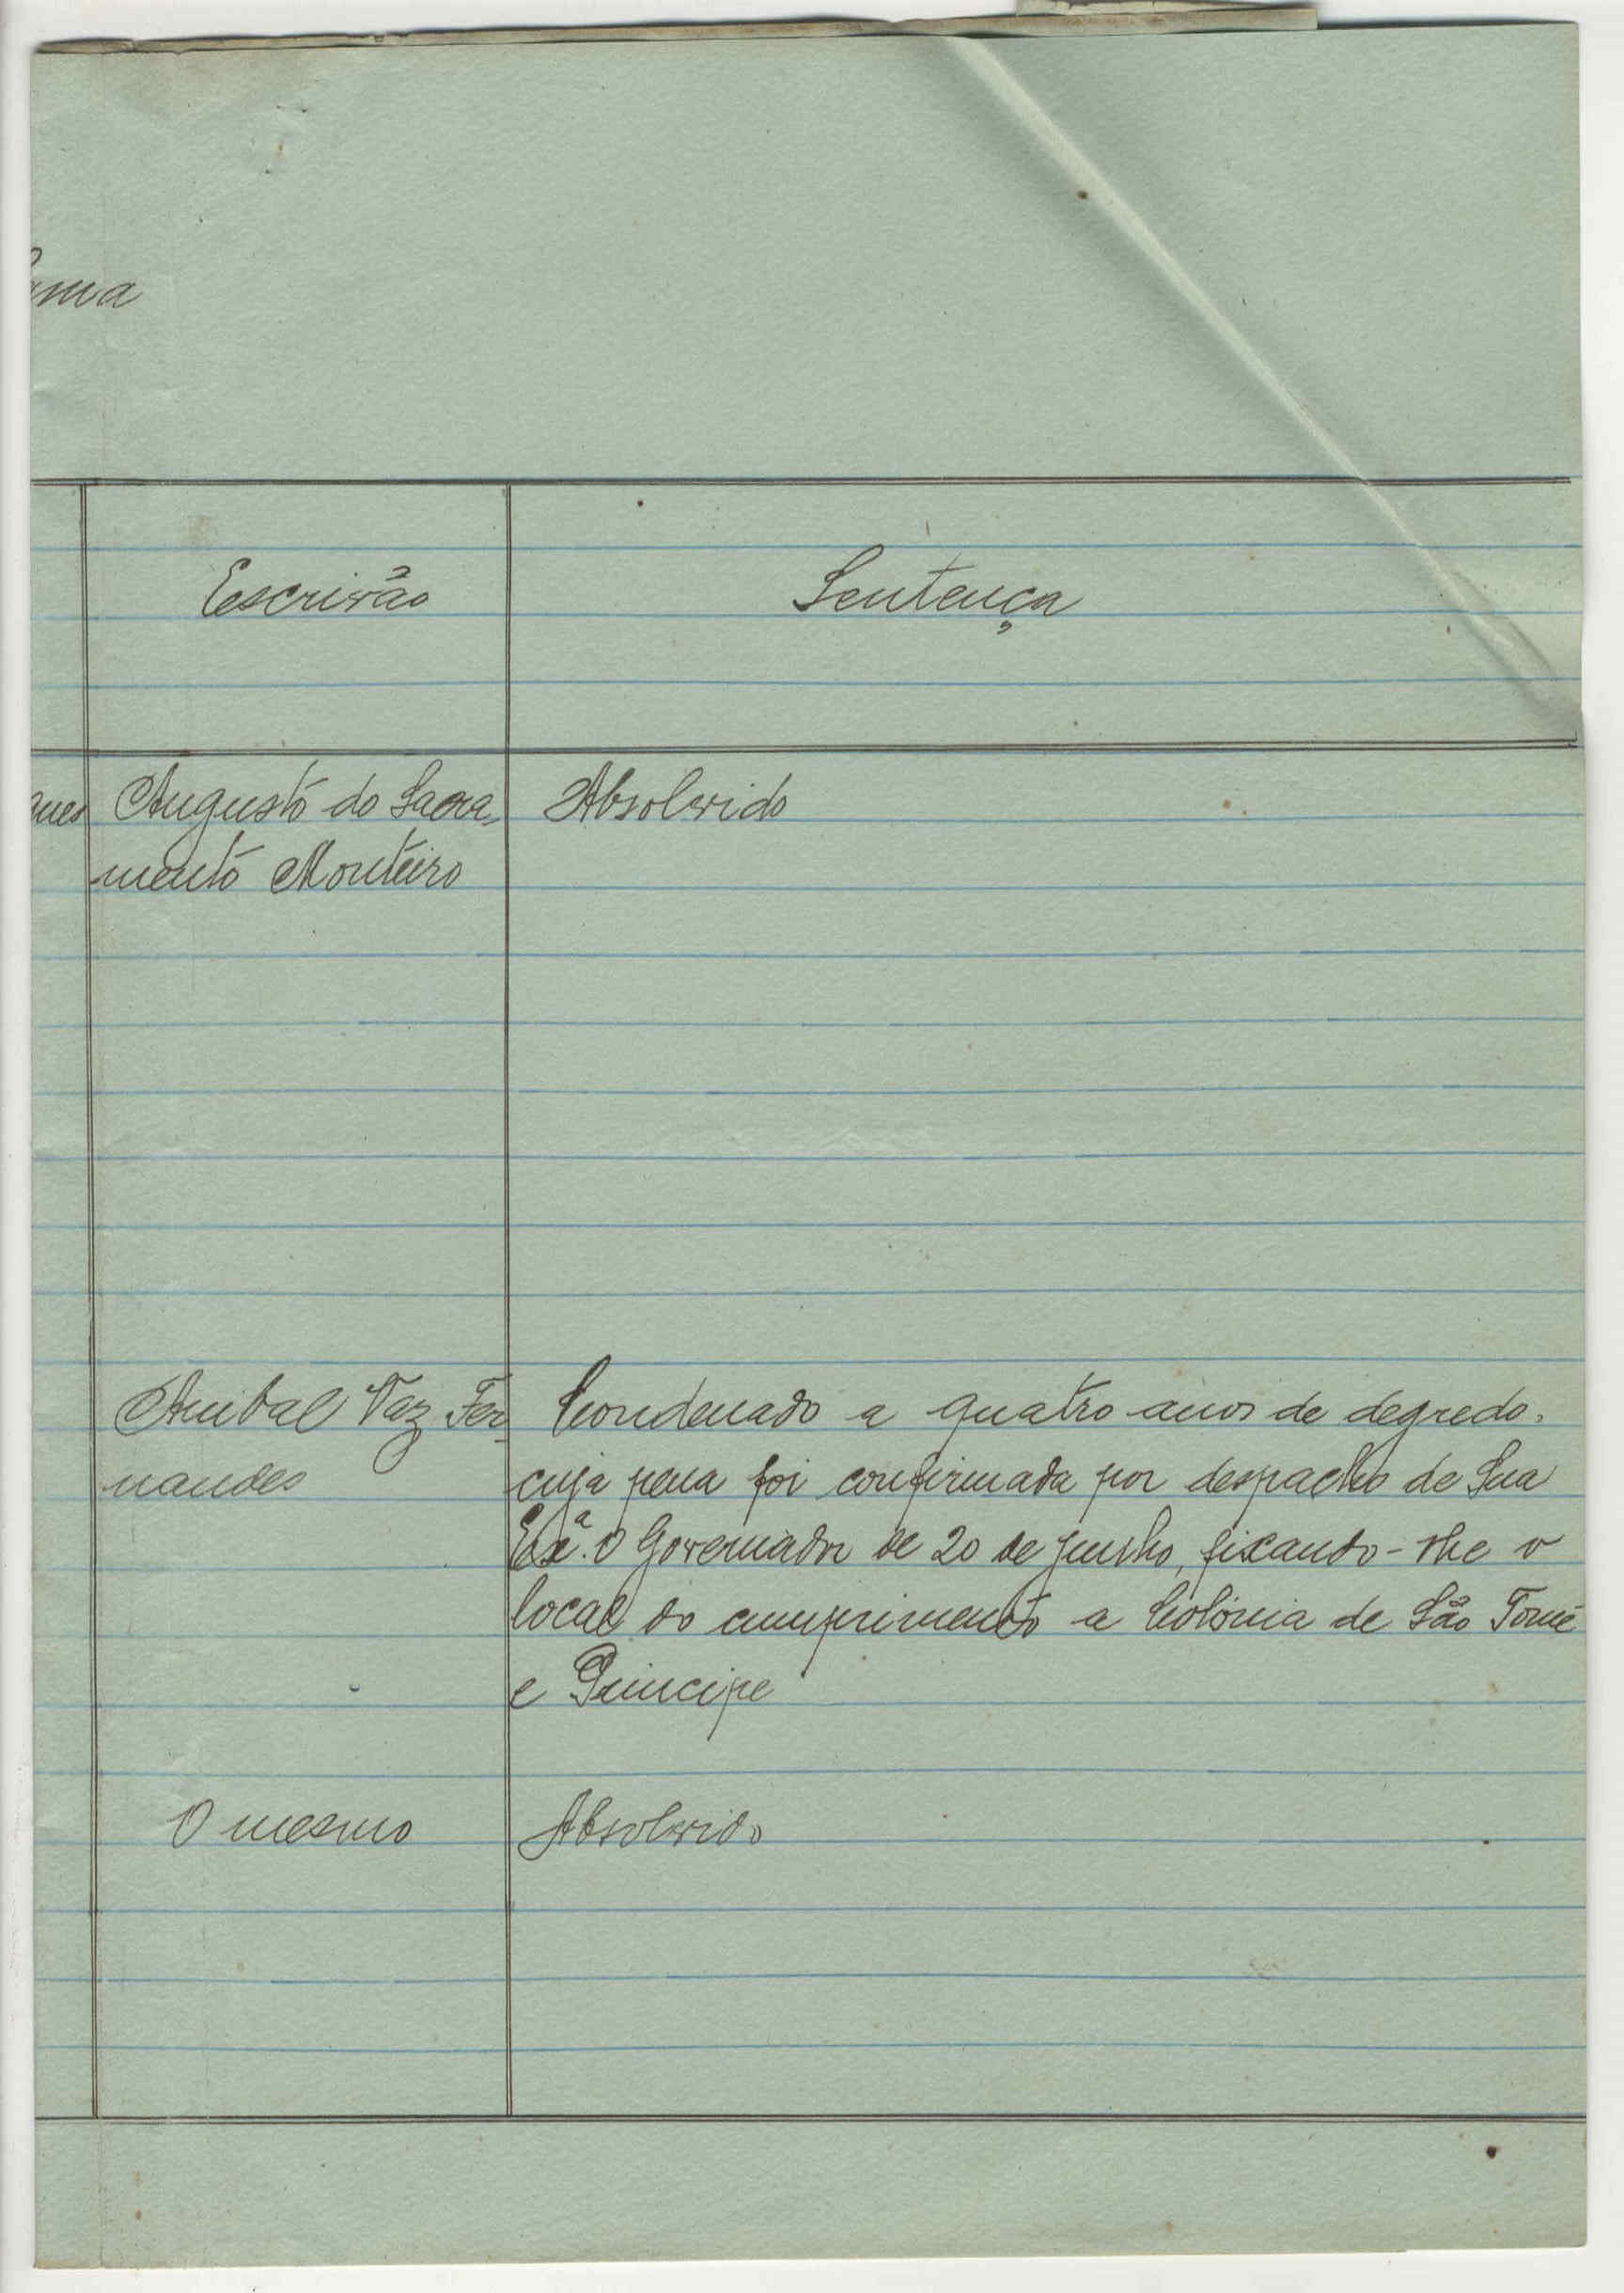 ama
Escrivão
Sentença
ques
Augusto do Sacra-
mento Monteiro
Absolvido
Anibal Vaz Fer-
nandes
Condenado a quatro anos de degredo,
cuja pena foi confirmada por despacho de Sua
Exª. O Governador de 20 de Junho, fixando-lhe o
local do cumprimento a Colónia de São Tomé
e Principe
O mesmo
Absolvido